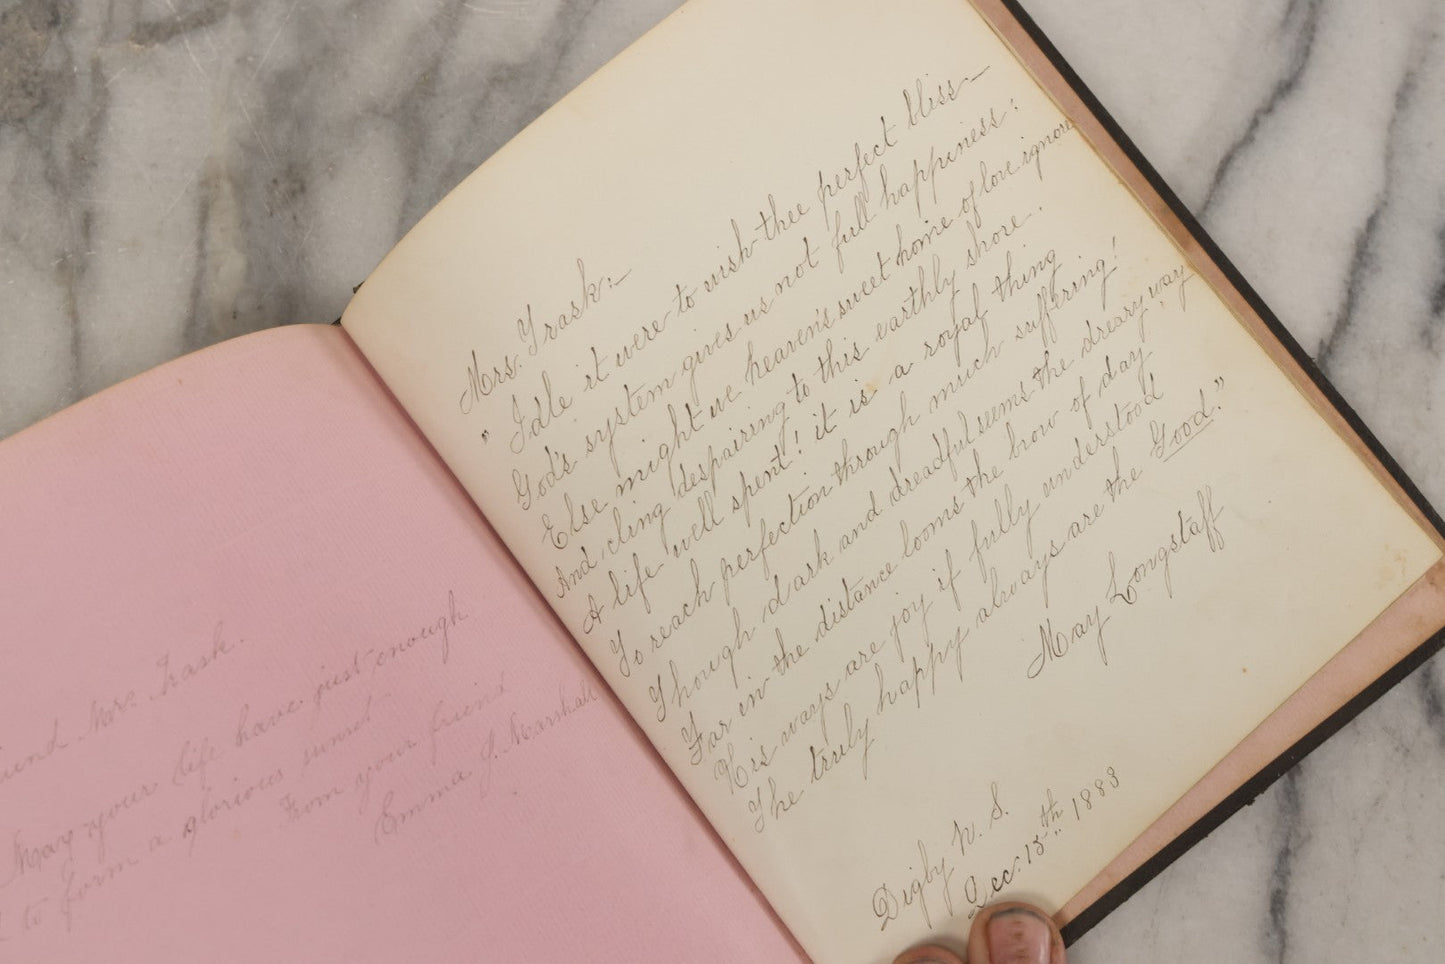 Friend Mrs. Trask.
May your life have just enough
to form a glorious sunset
From your friend
Emma J. Marshall
Mrs. Trask:—
"Idle it were to wish thee perfect bliss—
God's system gives us not full happiness:
Else might we heaven's sweet home of love ignore
And, cling despairing to this earthly shore.
A life well spent! it is a royal thing
To reach perfection through much suffering!
Though dark and dreadful seems the dreary way,
Far in the distance looms the brow of day
His ways are joy if fully understood
The truly happy always are the Good."
May Longstaff
Digby N. S.
Dec. 15th 1883